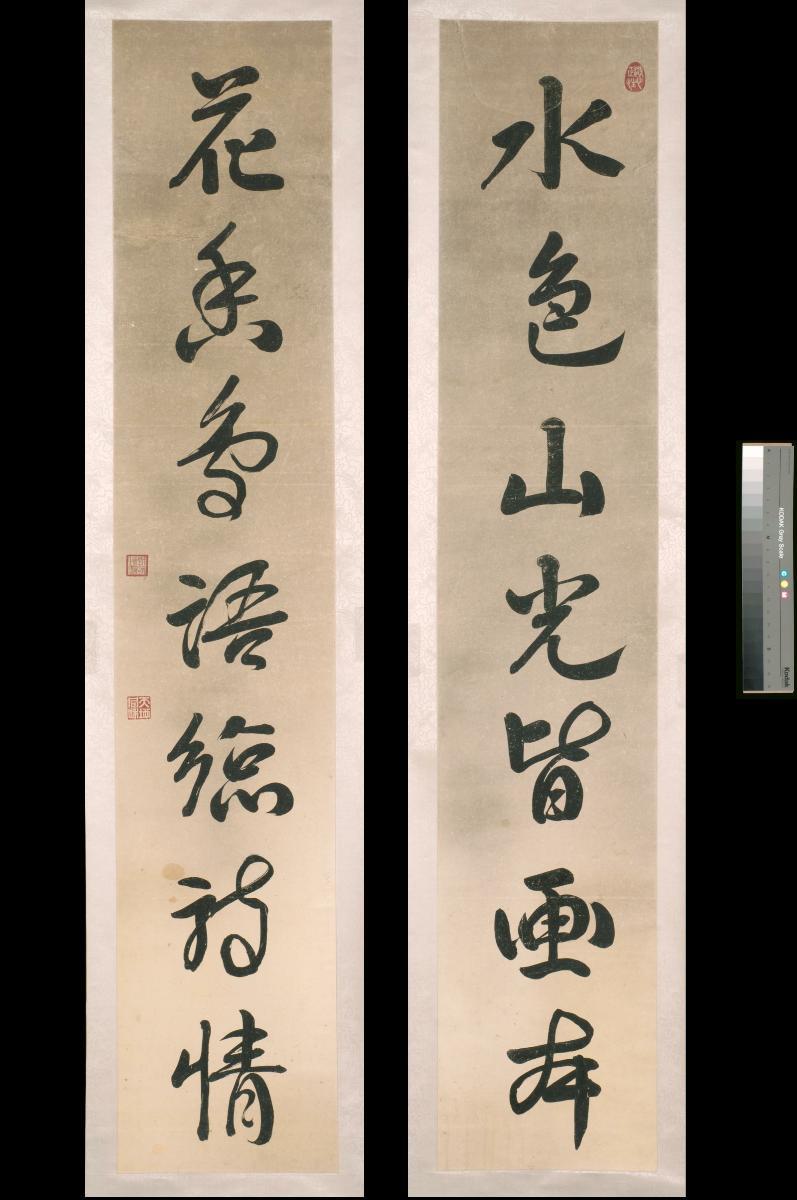 水色山光皆画本
花香鸟語總詩情
KODAK Gray Scale
C
Y
M
Kodak